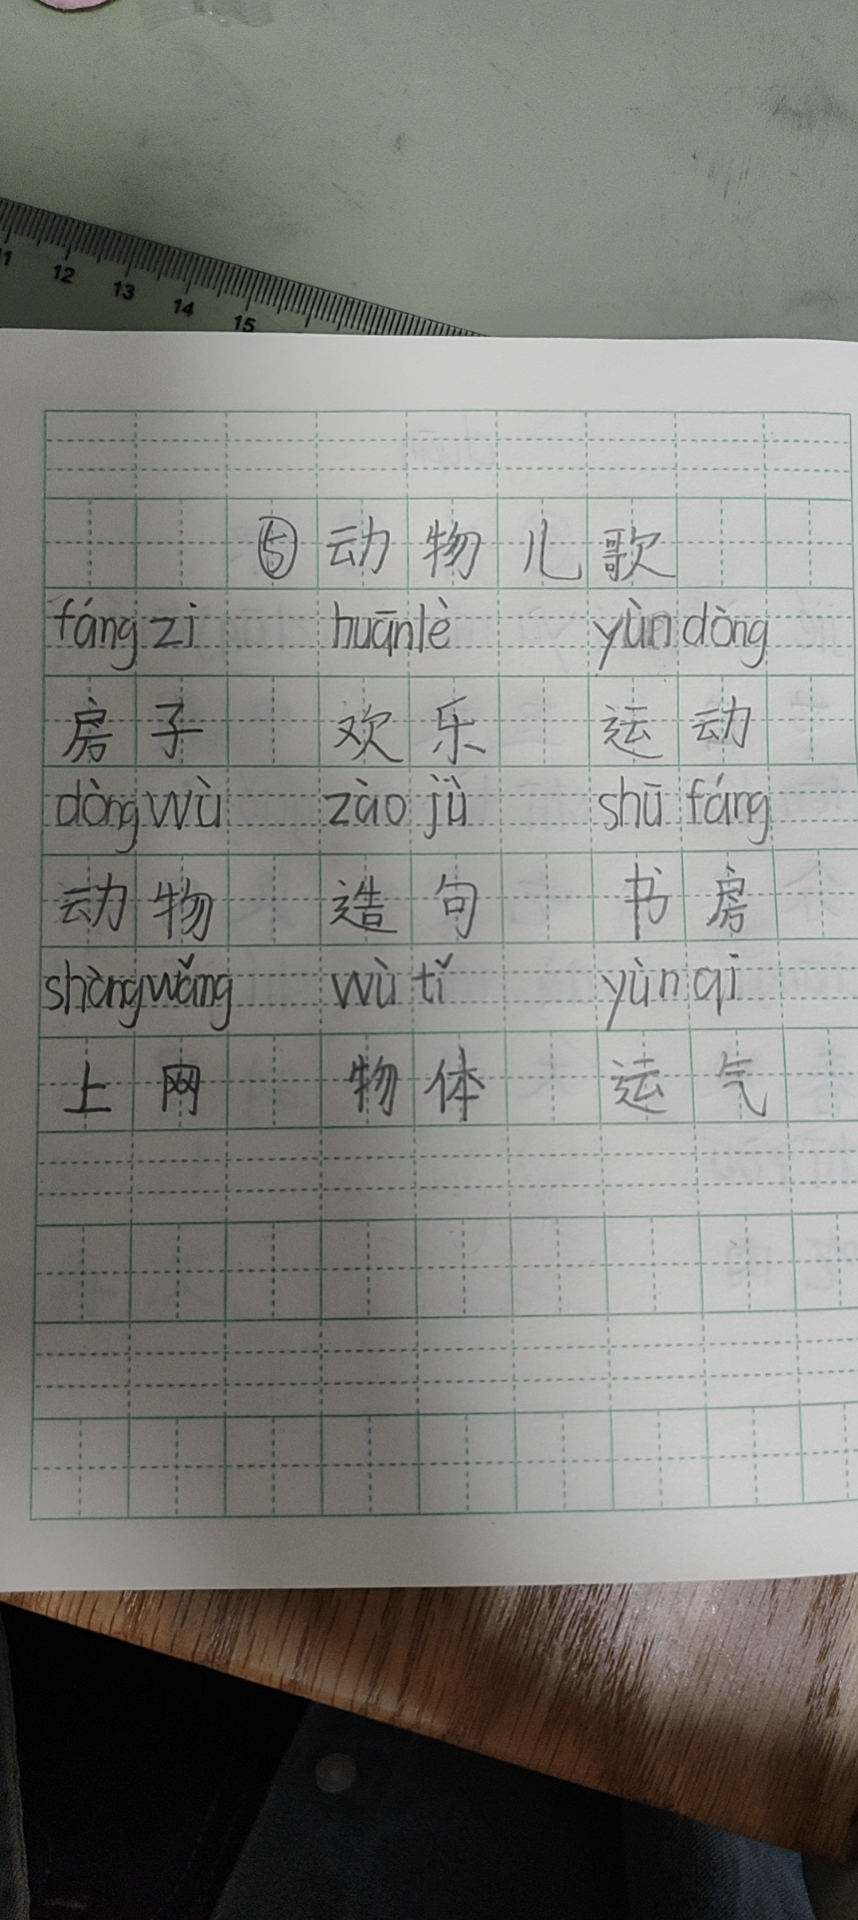 11 12 13 14 15
⑤动物儿歌
fángzi huānlè yùndòng
房子 欢乐 运动
dòngwù zàojù shūfáng
动物 造句 书房
shàngwǎng wùtǐ yùnqi
上网 物体 运气